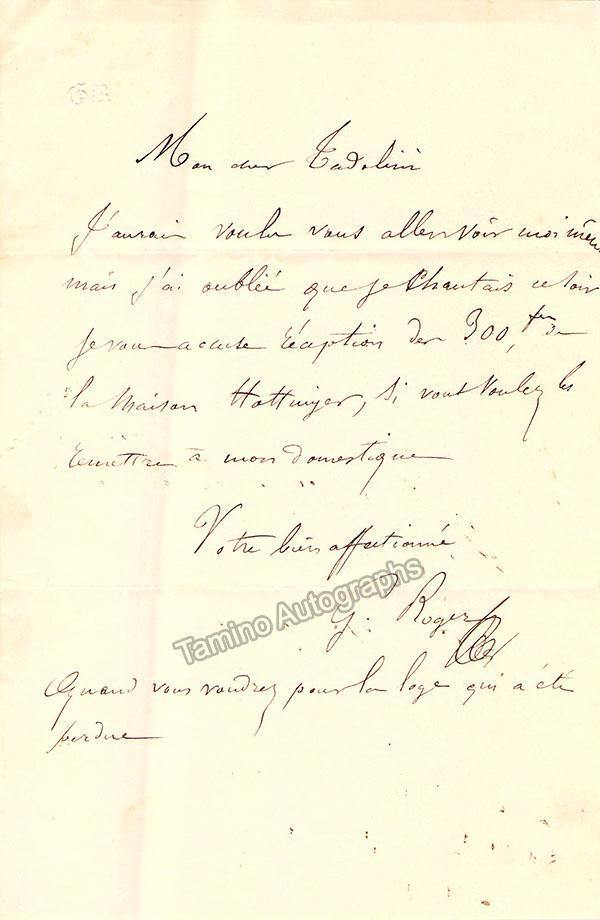 GR
Mon cher Tadolini
J'aurais voulu vous aller voir moi même
mais j'ai oublié que je Chantais ce soir
je vous accuse réception des 300, frs de
la Maison Hottinger, Si vous voulez les
remettre à mon domestique
Votre bien affectionné
G. Roger
Tamino Autographs
Quand vous voudrez pour la loge qui a été
perdue